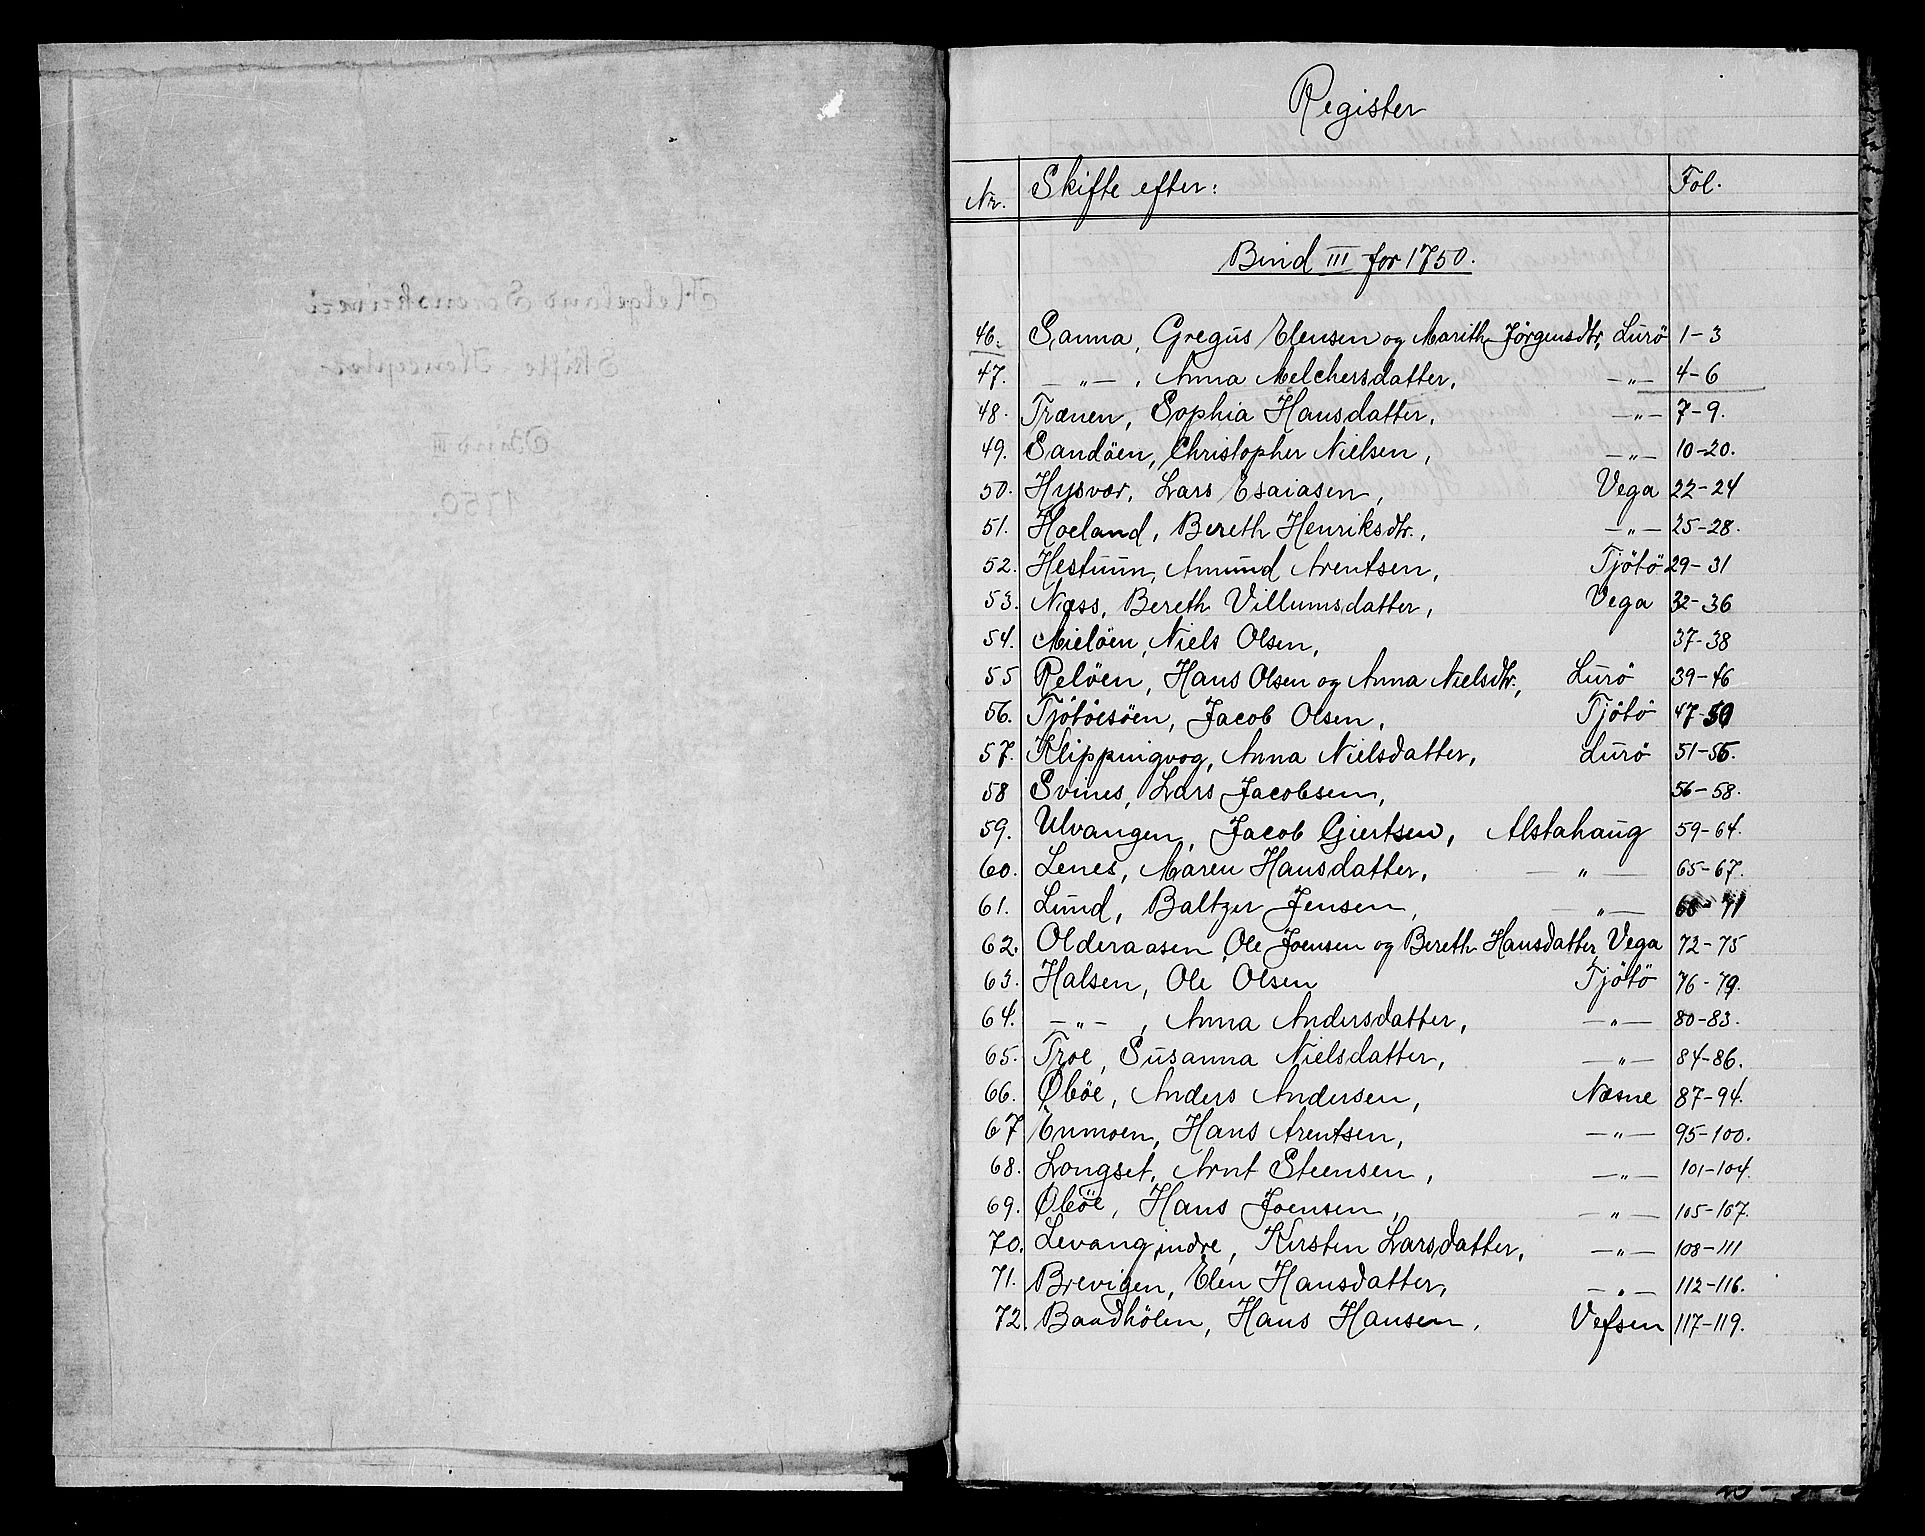 Register
Nr. Skifte efter: Fol.
Bind III for 1750.
46. Sanna, Gregus Elensen og Marith Jörgensdtr, Lurö 1-3
47. -„-, Anna Melchersdatter, -„- 4-6
48. Trænen, Sophia Hansdatter, -„- 7-9.
49. Sandöen, Christopher Nielsen, -„- 10-20.
50. Hysvær, Lars Esaiasen, Vega 22-24
51. Hoeland, Bereth Henriksdtr., -„- 25-28.
52. Hestuun, Amund Arentsen, Tjötö 29-31
53. Næss, Bereth Villumsdatter, Vega 32-36
54. Mielöen, Niels Olsen, 37-38
55 Relöen, Hans Olsen og Anna Nielsdtr., Lurö 39-46
56. Tjötöesöen, Jacob Olsen, Tjötö 47-50
57. Klippingvog, Anna Nielsdatter, Lurö 51-55.
58 Svines, Lars Jacobsen, 56-58.
59. Ulvangen, Jacob Giertsen, Alstahaug 59-64.
60. Lenes, Maren Hansdatter, -„- 65-67.
61. Lund, Baltzer Jensen, -„- 68-71
62. Olderaasen, Ole Joensen og Bereth Hansdatter, Vega 72-75
63. Halsen, Ole Olsen Tjötö 76-79.
64. -„-, Anna Andersdatter, -„- 80-83.
65. Troe, Susanna Nielsdatter, -„- 84-86.
66. Øböe, Anders Andersen, Næsne 87-94.
67 Enmoen, Hans Arentsen, -„- 95-100.
68. Longset, Arnt Steensen, -„- 101-104.
69. Øböe, Hans Joensen, -„- 105-107.
70. Levang indre, Kirsten Larsdatter, -„- 108-111
71. Brevigen, Elen Hansdatter, -„- 112-116.
72. Baadhölen, Hans Hansen, Vefsen 117-119.